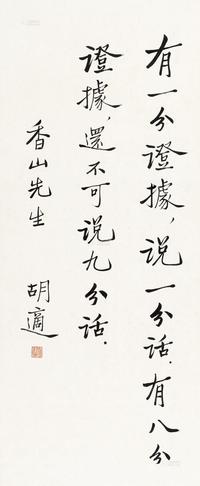 有一分證據，说一分话．有八分
證據，還不可说九分话．
香山先生
胡適